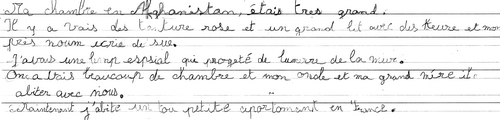 Ma chambre en Afghanistan, étais tres grand.
Il y a vais des tinture rose et un grand lit avec des fleure et mon
près noum ecrie de sue.
J'avais une lamp espsial qui progeté de lumière de la mur.
On a tris beaucoup de chambre et mon oncle et ma grand mère il
abiter avec nous.
j'abite un tou petite aportomant en France.